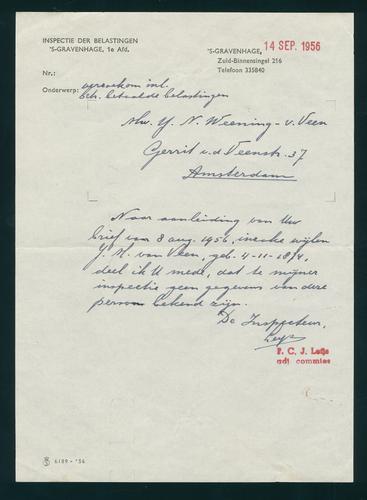 INSPECTIE DER BELASTINGEN
'S-GRAVENHAGE, 1e Afd.
'S-GRAVENHAGE, 14 SEP. 1956
Zuid-Binnensingel 216
Telefoon 335840
Nr.:
Onderwerp: inl.
betr. betaalde belastingen
Mw. Y. N. Weening - v. Veen
Gerrit v.d Veenstr. 37
Amsterdam
Naar aanleiding van Uw
brief van 8 aug. 1956, inzake wijlen
J. H. van Veen, geb. 4-11-1874,
deel ik U mede, dat te mijner
inspectie geen gegevens van deze
persoon bekend zijn.
De Inspecteur,
P. C. J. Leijs
adj. commies
6189 - '56